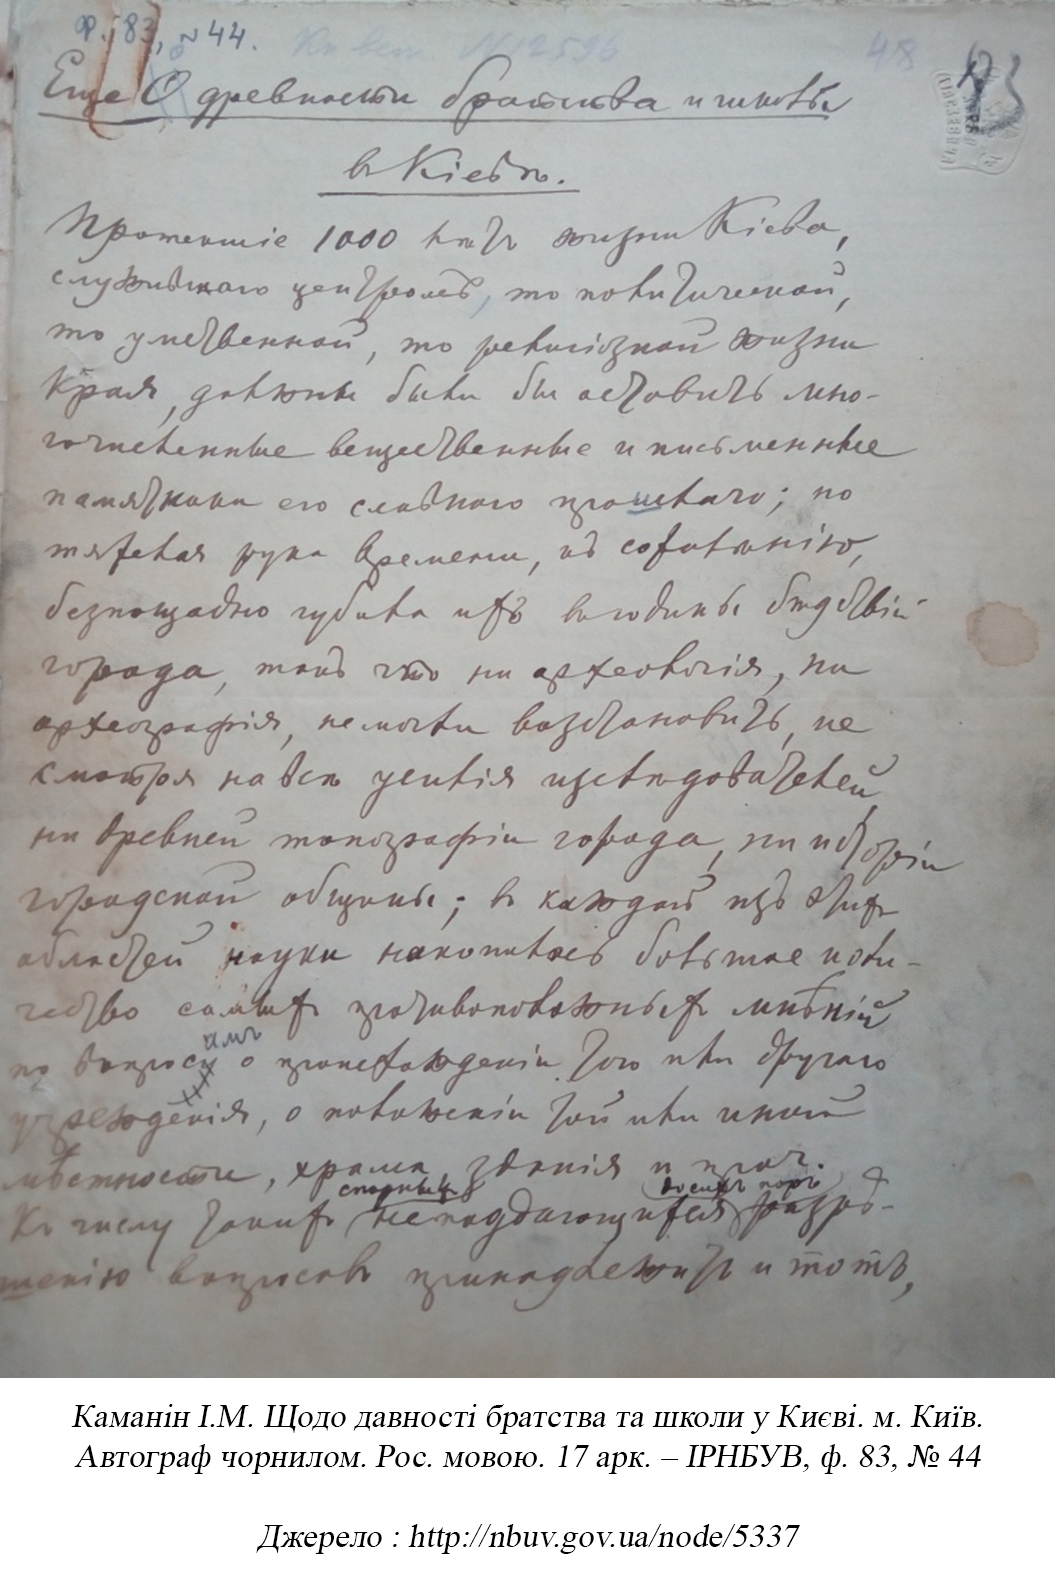 Ф. 83, №44.
48
Еще О древности братства и школы
в Кіевѣ.
Протекшіе 1000 лѣтъ жизни Кіева,
служившаго центромъ, то политической,
то умственной, то религіозной жизни
края, должны были бы оставить мно-
гочисленные вещественные и письменные
памятники его славнаго прошлаго; но
тяжелая рука времени, къ сожалѣнію,
безпощадно губила ихъ въ годины бѣдствій
города, такъ что ни археологія, ни
археографія, не могли возстановить, не
смотря на всѣ усилія изслѣдователей,
ни древней топографіи города, ни исторіи
городской общины; въ каждой изъ этихъ
областей науки накопилось большое коли-
чество самыхъ противоположныхъ мнѣній
амъ
по вопросу о происхожденіи того или другаго
учрежденія, о положеніи той или иной
мѣстности, храма, зданія и проч.
спорныхъ до сихъ поръ
Къ числу такихъ неподдающихся разрѣ-
шенію вопросовъ принадлежитъ и тотъ,
Каманін І.М. Щодо давності братства та школи у Києві. м. Київ.
Автограф чорнилом. Рос. мовою. 17 арк. – ІРНБУВ, ф. 83, № 44
Джерело : http://nbuv.gov.ua/node/5337